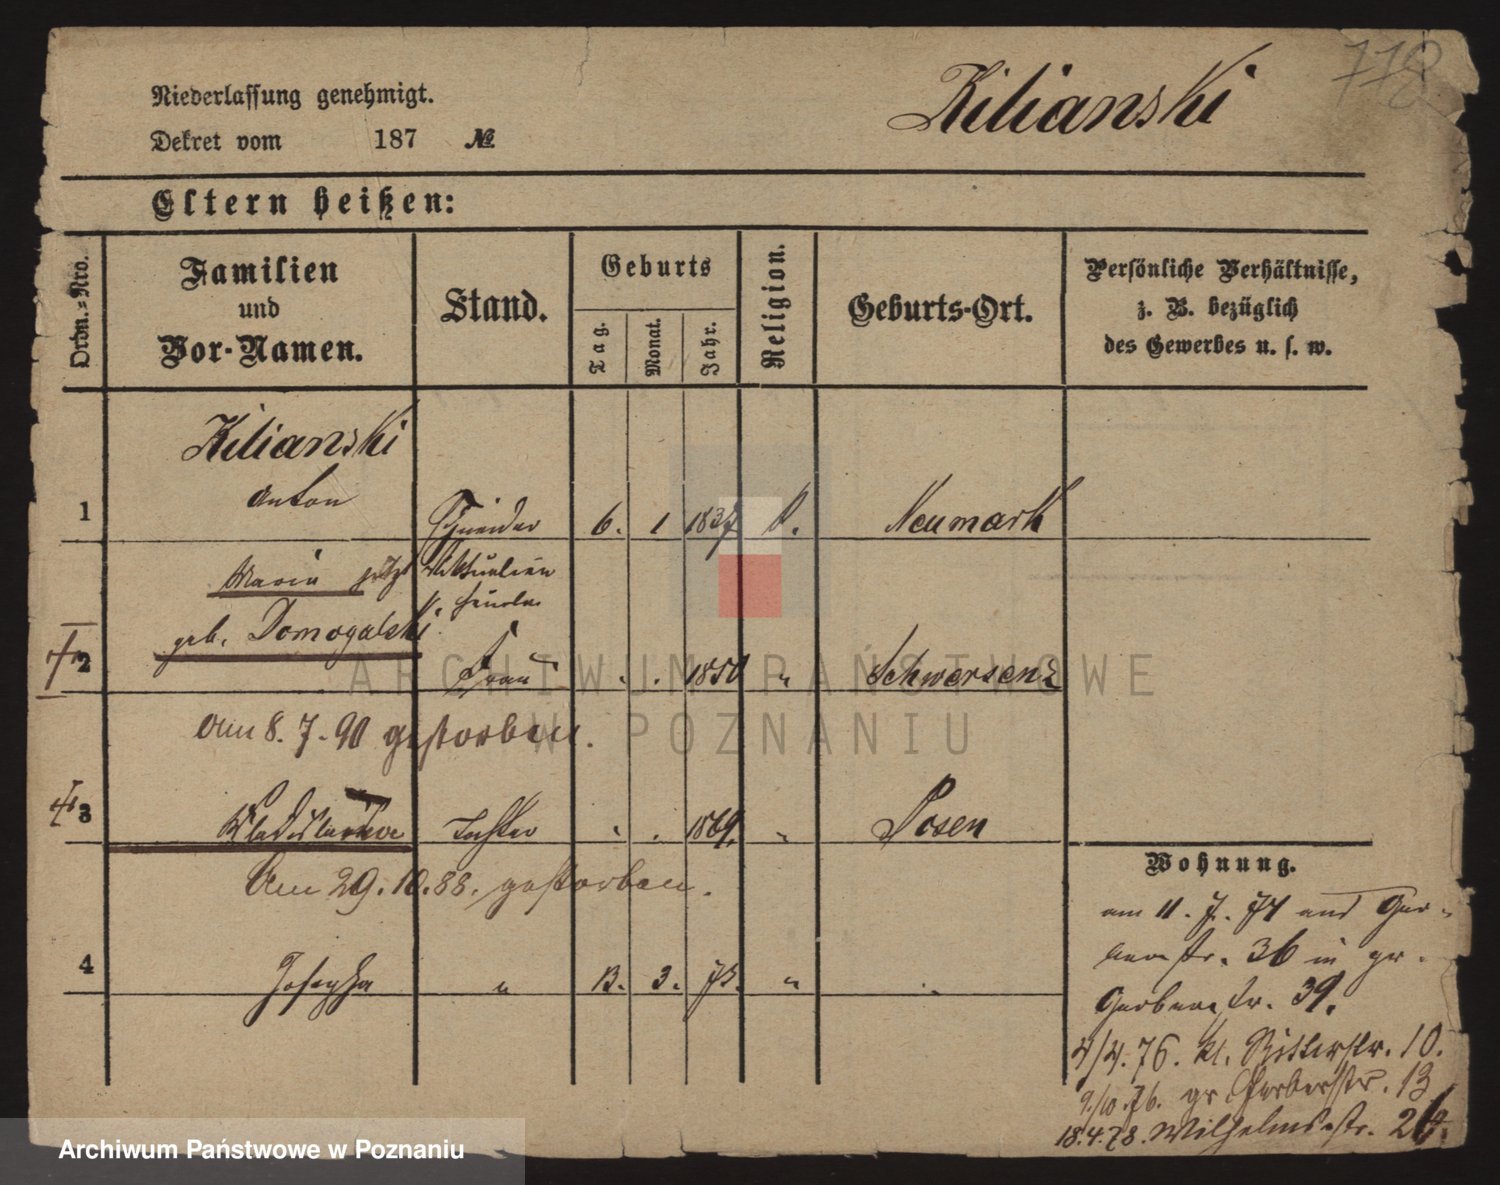 Niederlassung genehmigt.
Dekret vom 187 №
Kilianski
718
Eltern heißen:
Ordn.=Nro.
Familien
und
Vor-Namen.
Stand.
Geburts
Tag.
Monat.
Jahr.
Religion.
Geburts-Ort.
Persönliche Verhältnisse,
z. B. bezüglich
des Gewerbes u. s. w.
Kilianski
1 Anton Schneider 6. 1 1837 k. Neumark
Maria jetzt Viktualien
geb. Domogalski
† 2 Frau . . 1850 " Schwersenz
Am 8. 7. 90 gestorben.
† 3 Wladislawa Tochter . . 1869. " Posen
Am 29. 10. 88. gestorben.
4 Josepha " 13. 3. 73. " "
Wohnung.
am 11. 7. 74 aus Ger-
berstr. 36 in gr.
Gerberstr. 39.
4/4. 76. kl. Ritterstr. 10.
9./10. 76. gr. Gerberstr. 13
18.4.78. Wilhelmsstr. 26.
ARCHIWUM PAŃSTWOWE
W POZNANIU
Archiwum Państwowe w Poznaniu